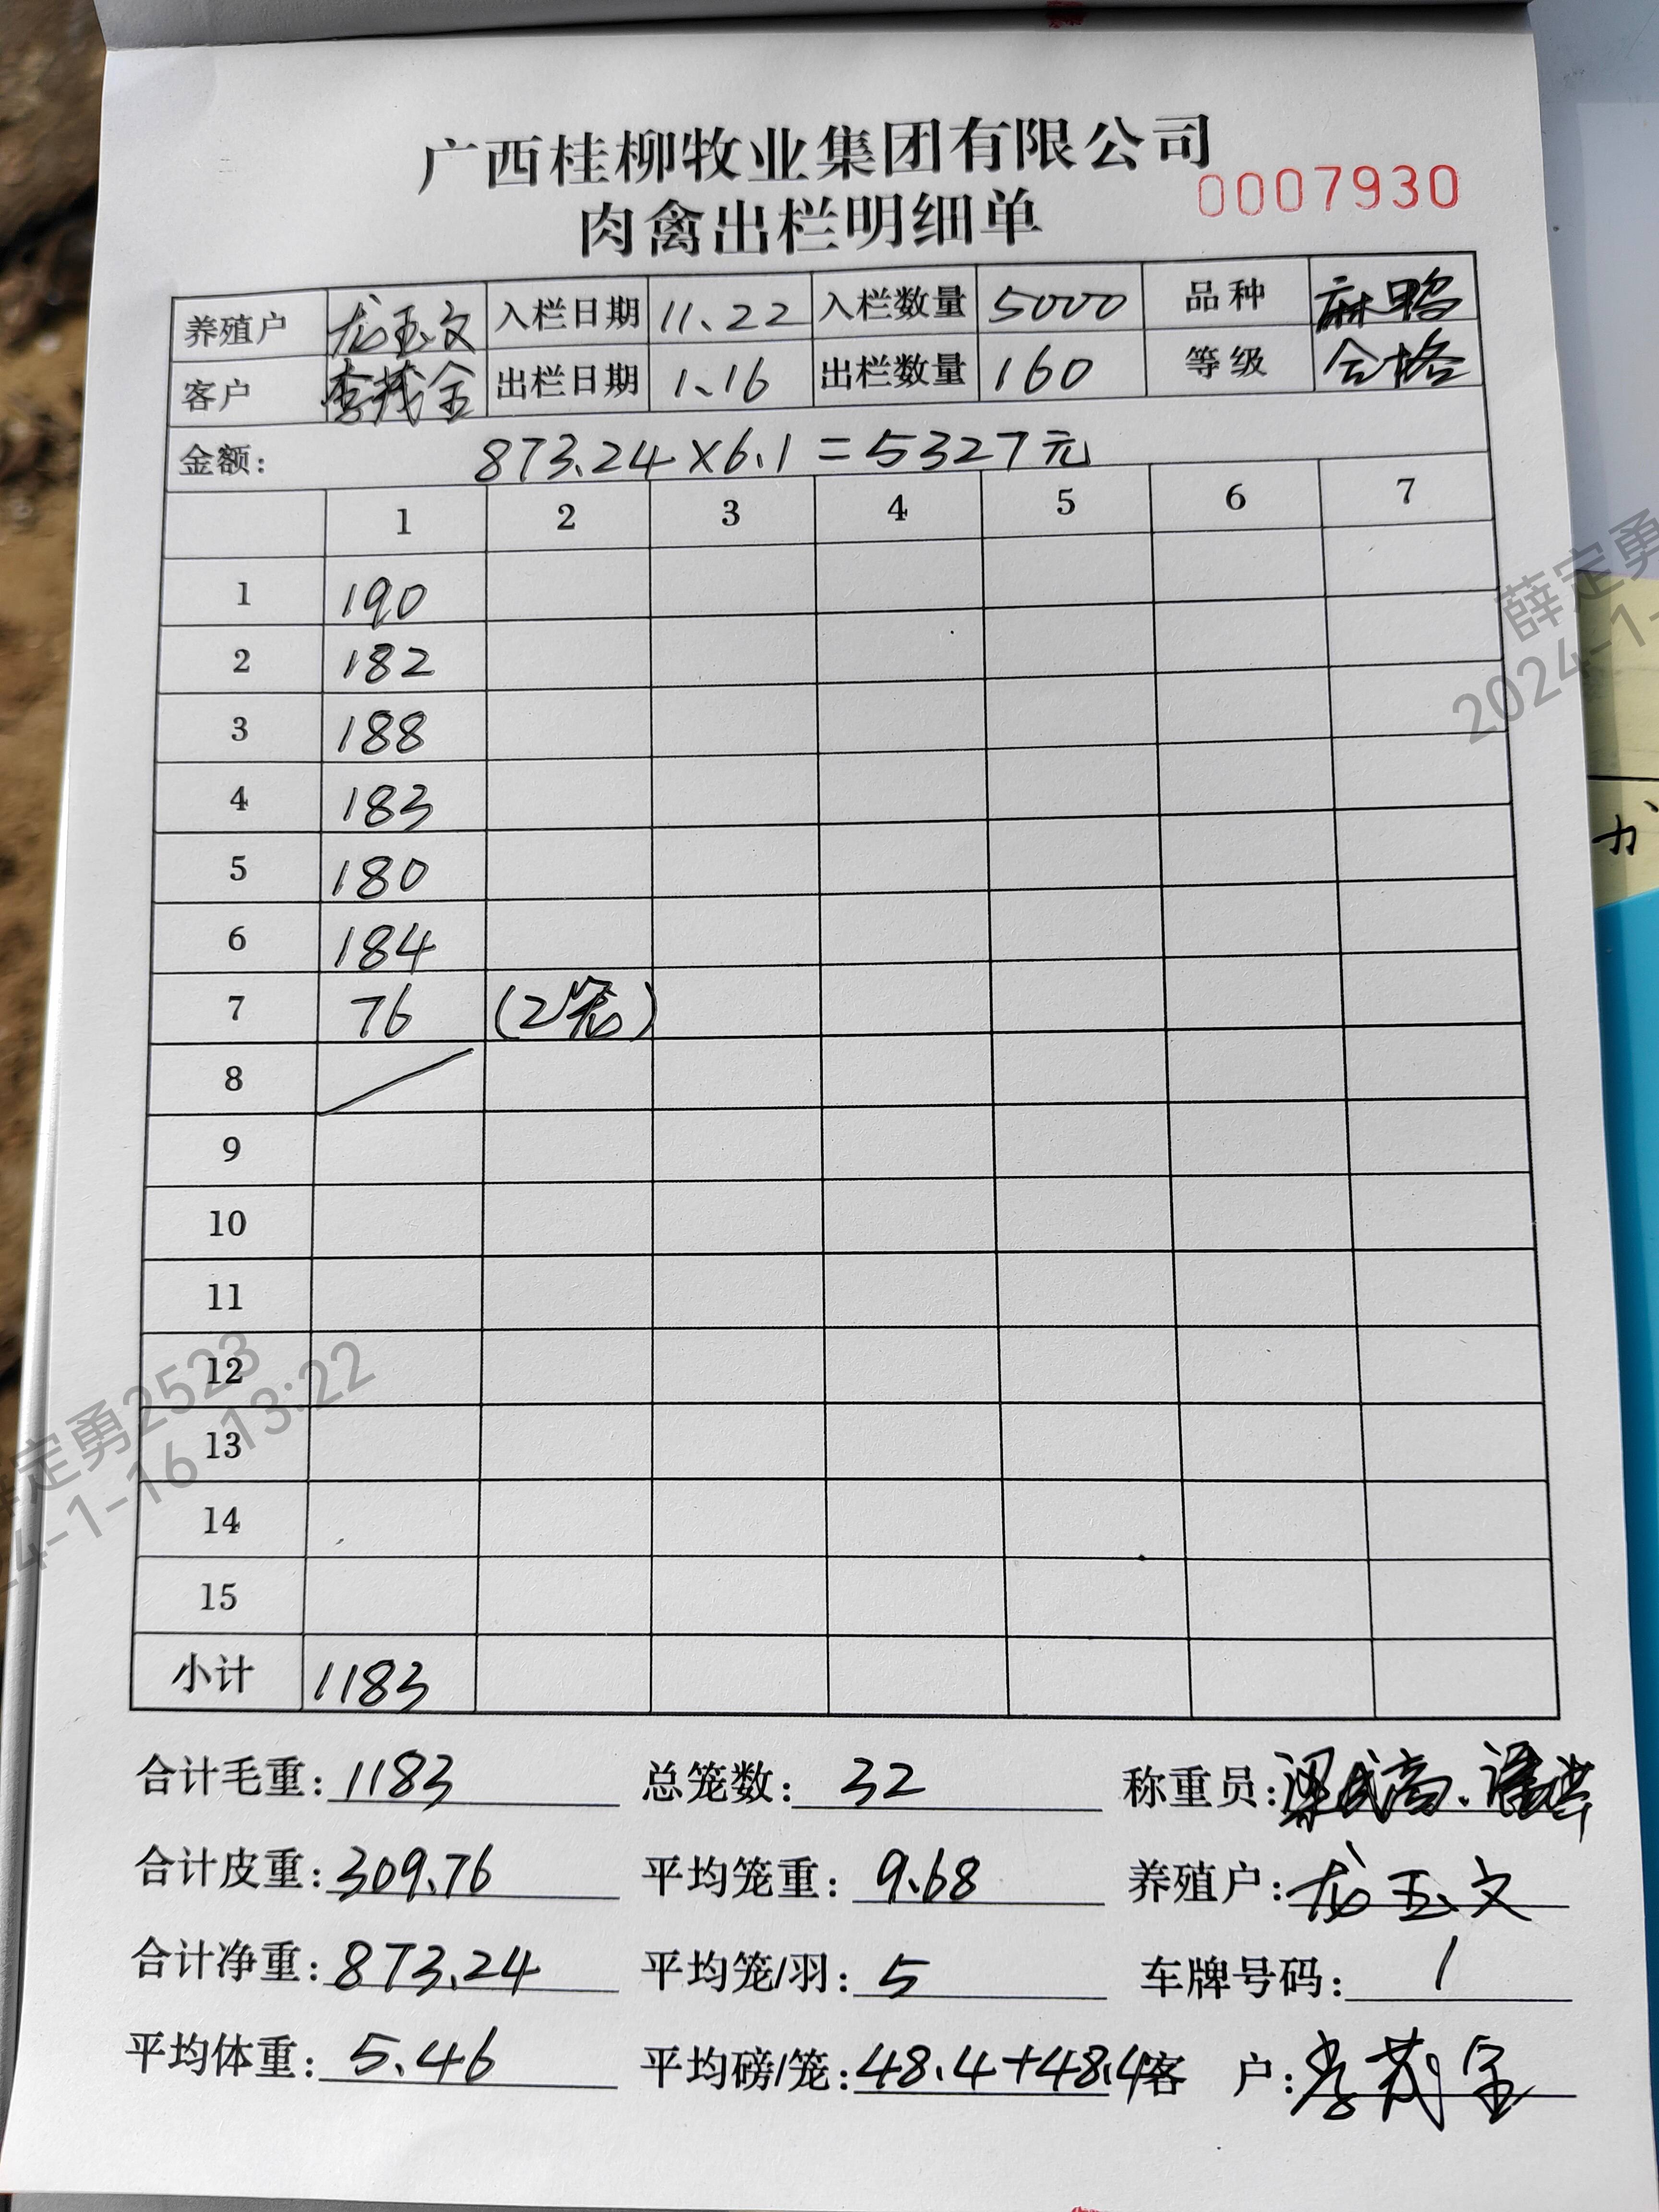 广西桂柳牧业集团有限公司
肉禽出栏明细单
0007930
养殖户 龙玉文 入栏日期 11、22 入栏数量 5000 品种 麻鸭
客户 李茂全 出栏日期 1、16 出栏数量 160 等级 合格
金额: 873.24×6.1=5327元
1 2 3 4 5 6 7
1 190
2 182
3 188
4 183
5 180
6 184
7 76 (2笼)
8
9
10
11
12
13
14
15
小计 1183
合计毛重: 1183 总笼数: 32 称重员:
合计皮重: 309.76 平均笼重: 9.68 养殖户: 龙玉文
合计净重: 873.24 平均笼/羽: 5 车牌号码: 1
平均体重: 5.46 平均磅/笼: 48.4+48.4 客 户: 李茂全
薛定勇
2024-1-
定勇2523
4-1-16 13:22